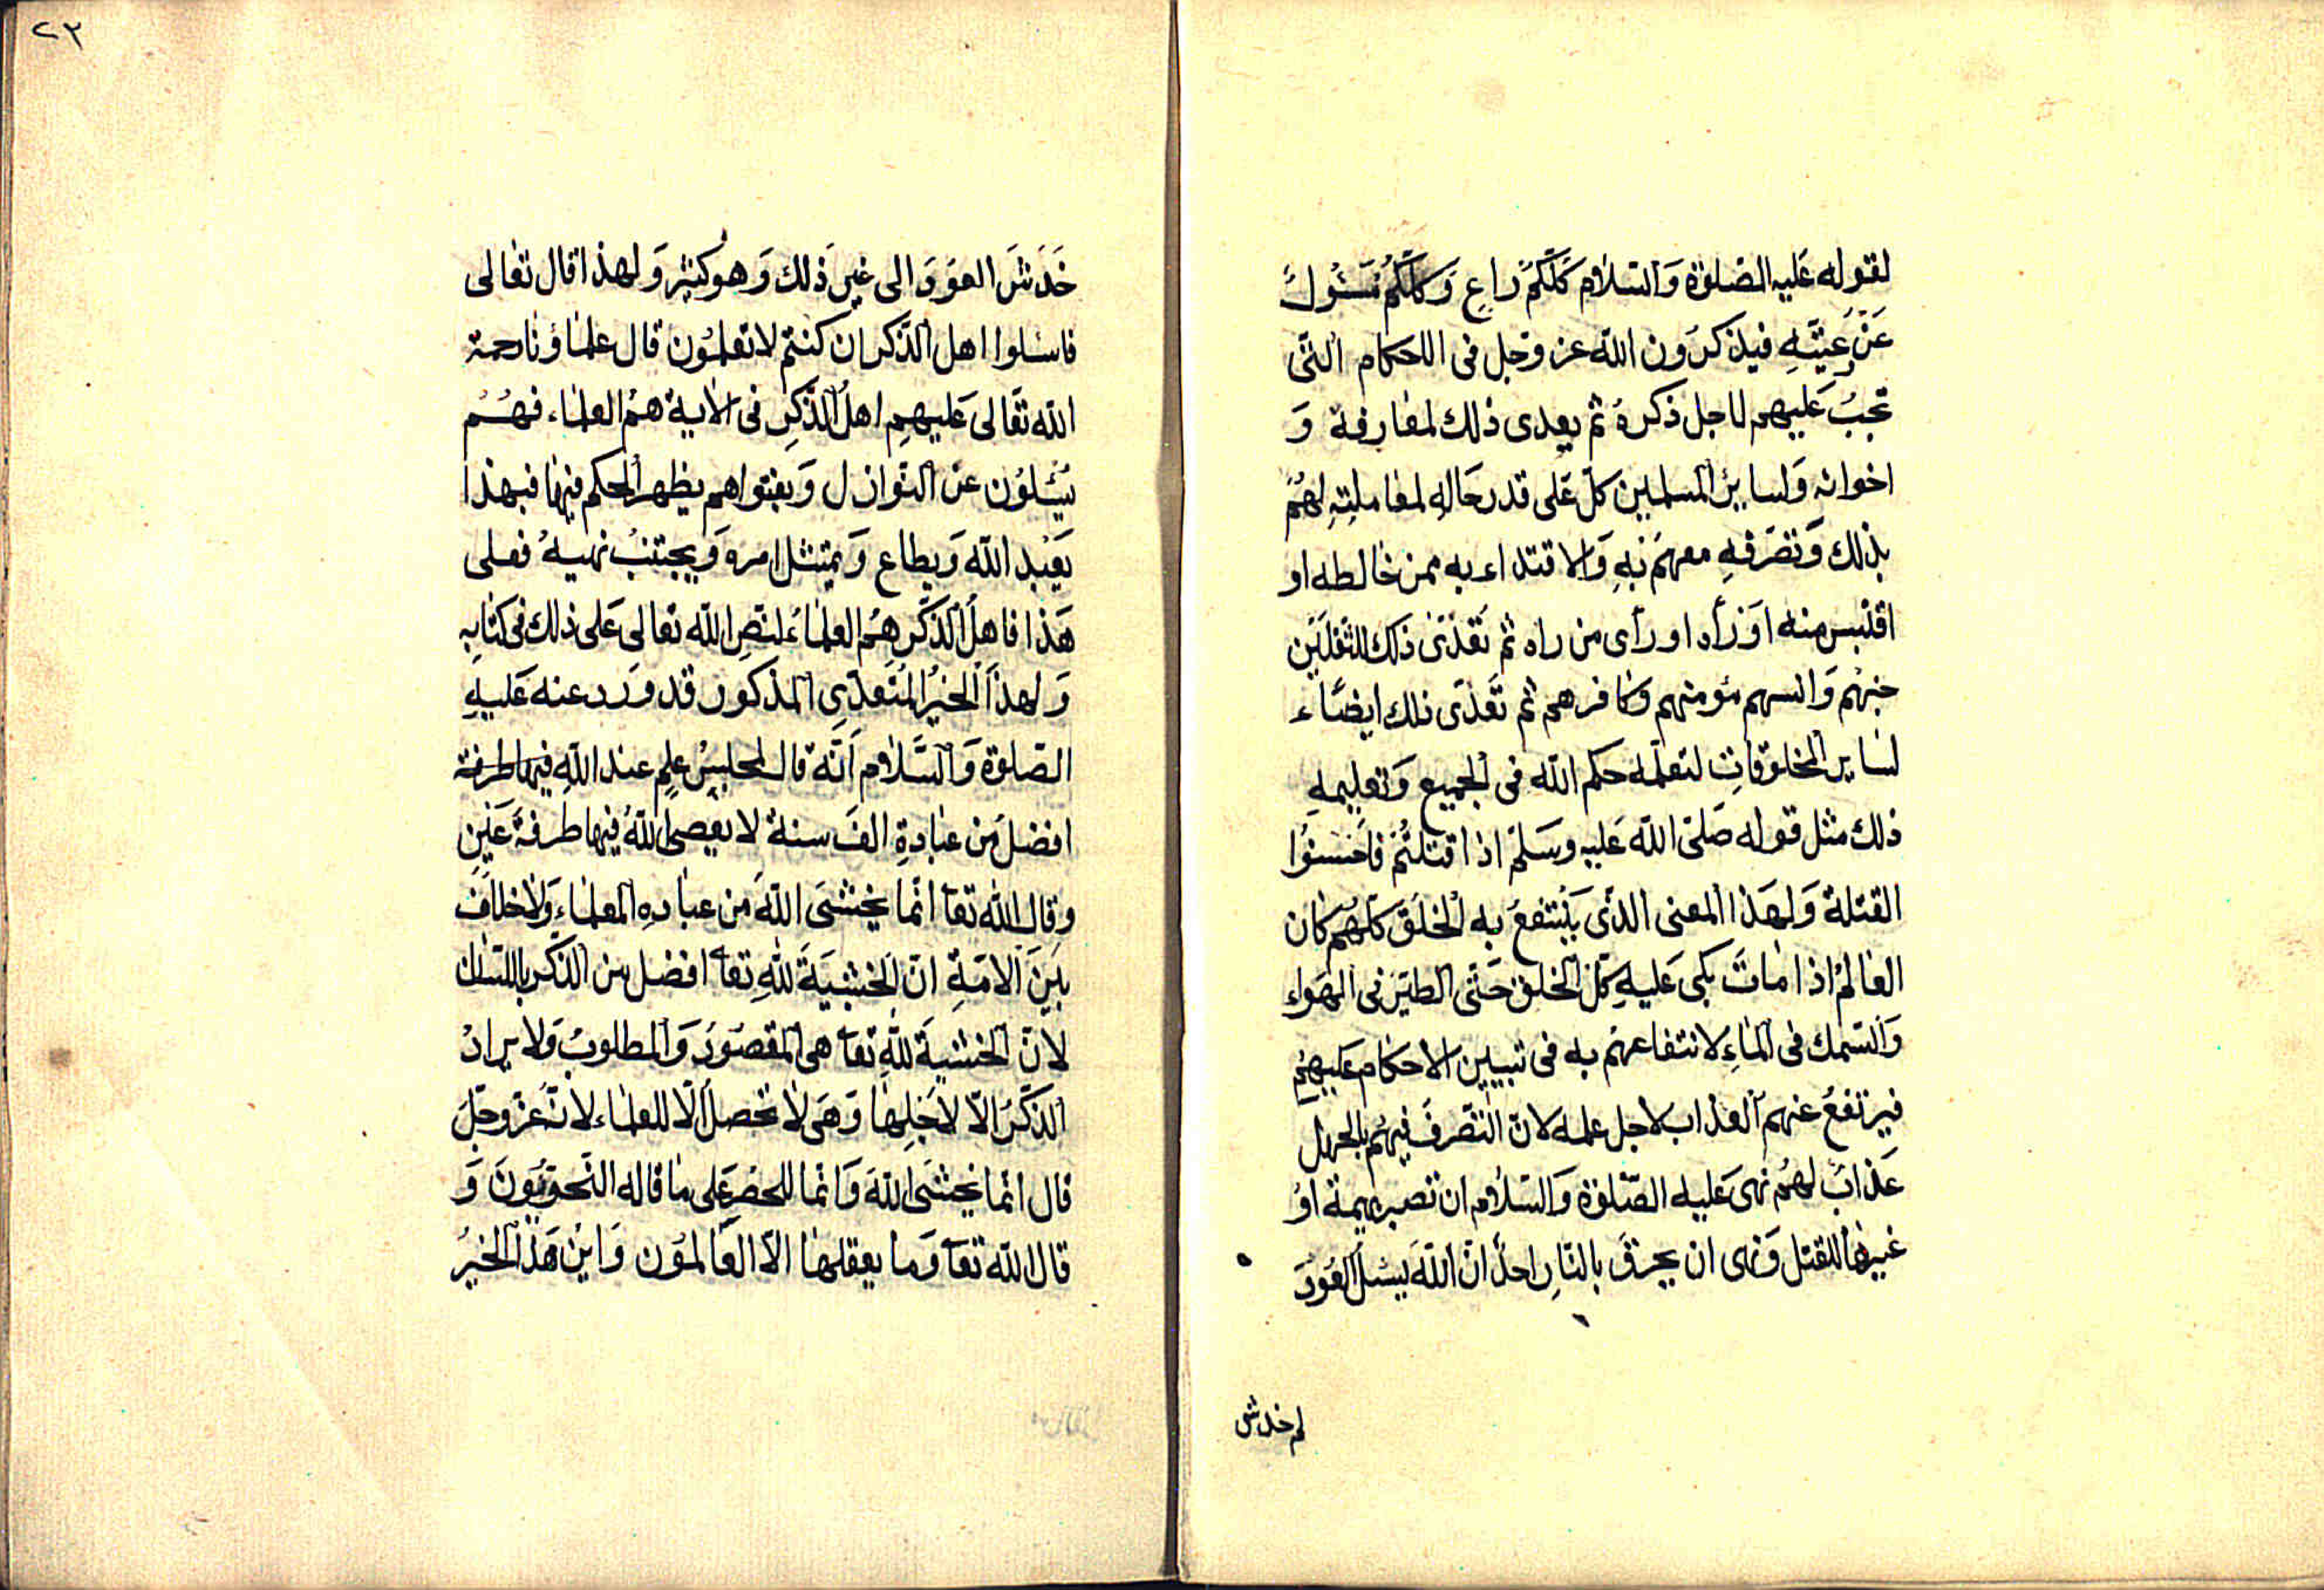 لقوله عَليه الصّلوة وَالسّلام كلّكمْ راعٍ وَكلّكمْ مَسْئُولٌ
عَنْ رعيّتَهِ فيذكرَون الله عز وجل فى الاحكام التّى
تجبُ عَليهم لاجل ذكرهُ ثم يعدى ذلك لمعارفه وَ
اخوانه وَلسايرُ المسلمين كلّ عَلى قدر حَالهِ لمعاملتِهِ لهُمْ
بذلك وَتصَرّفهِ معهمَ بهِ وَالاقتداء به ممن خالطه او
اقتبس منه اوَ رأه او رأى من راه ثم تعَدّىَ ذلك للثقلَين
جنهم وَانسهم مؤمنهم وكافرهم ثم تعَدّى ذلك ايضًاء
لساير المخلوقاتِ لتعلّمه حكم الله فى الجميع وَتعليمهِ
ذلك مثل قوله صَلّى الله عَليه وسَلمّ اذا قتلتُمْ فاحَسنوُا
القتلة وَلهذا المعنى الذّى يَنتفعُ به الخلَق كلّهُم كان
العالمُ اذا ماتَ بكى عَليهِ كلّ الخلق حَتّى الطيَر فى الهواء
وَالسّمك فى الماءِ لانتفاعهمْ به فى تبيين الاحكام عَليهمْ
فيرتفعُ عنهم العذاب لاجل علمه لانّ التّصّرفَ فيهُم بالجهل
عَذابٌ لهُم نهى عَليه الصّلوة وَالسّلام ان تصبر بهيمة اوُ
غيرها للقتل وَنهى ان يحرَق بالنّارِ احدٌ انّ اللهَ ليسئل العُودَ
لم خدش
٢٣
خَدَشَ العوَدَ الى غيرِ ذلك وَهو كثير وَلهذا قال تعالى
فاسئلوا اهل الذّكر ان كنتم لا تعلمُون قال علماؤنا رحمة
الله تعَالى عَليهمِ اهلُ الذّكرِ فى الاية همُ العلماء فهُمُ
يُسْئلوُن عن النّوازل وَبفتواهم يظهر الحكم فيها فبهذا
يَعْبُد الله وَيطاع وَيمتثل امره وَيجتنبُ نهيهُ فعلى
هَذا فاهلُ الذّكر هُم العلماءُ لنصِ الله تعالى عَلى ذلك فى كتابِه
وَلهذا الخيُر المُتعدّىِ المذكور قد وَرد عنه عَليهِ
الصّلوة وَالسَّلام اَنّه قال لمجلسُ علِم عند اللهِ فيها طرفة
افضلَ من عبادةِ الفَ سنةُ لا يعُصى اللهُ فيها طرفة عَين
وقال الله تعآ انّما يخشىَ اللهَ من عبادهِ العلماءِ وَلا خلاف
بينَ الامّةِ انّ الخشيَةَ للهِ تعآ افضل من الذكر باللسّان
لانّ الخشية للهِ تعآ هى المقصُودَ وَالمطلوبُ وَلا يرادُ
الذّكَر الاّ لاجَلِها وَهىَ لا تحصل الّا للعلماء لانّه عزّ وجَلّ
قال انّما يخشىَ اللهَ وَانما للحصر عَلى ما قاله النّحويّونَ وَ
قال الله تعآ وَما يعقلها الاّ العَالموُن وَاينُ هَذا الخيُر